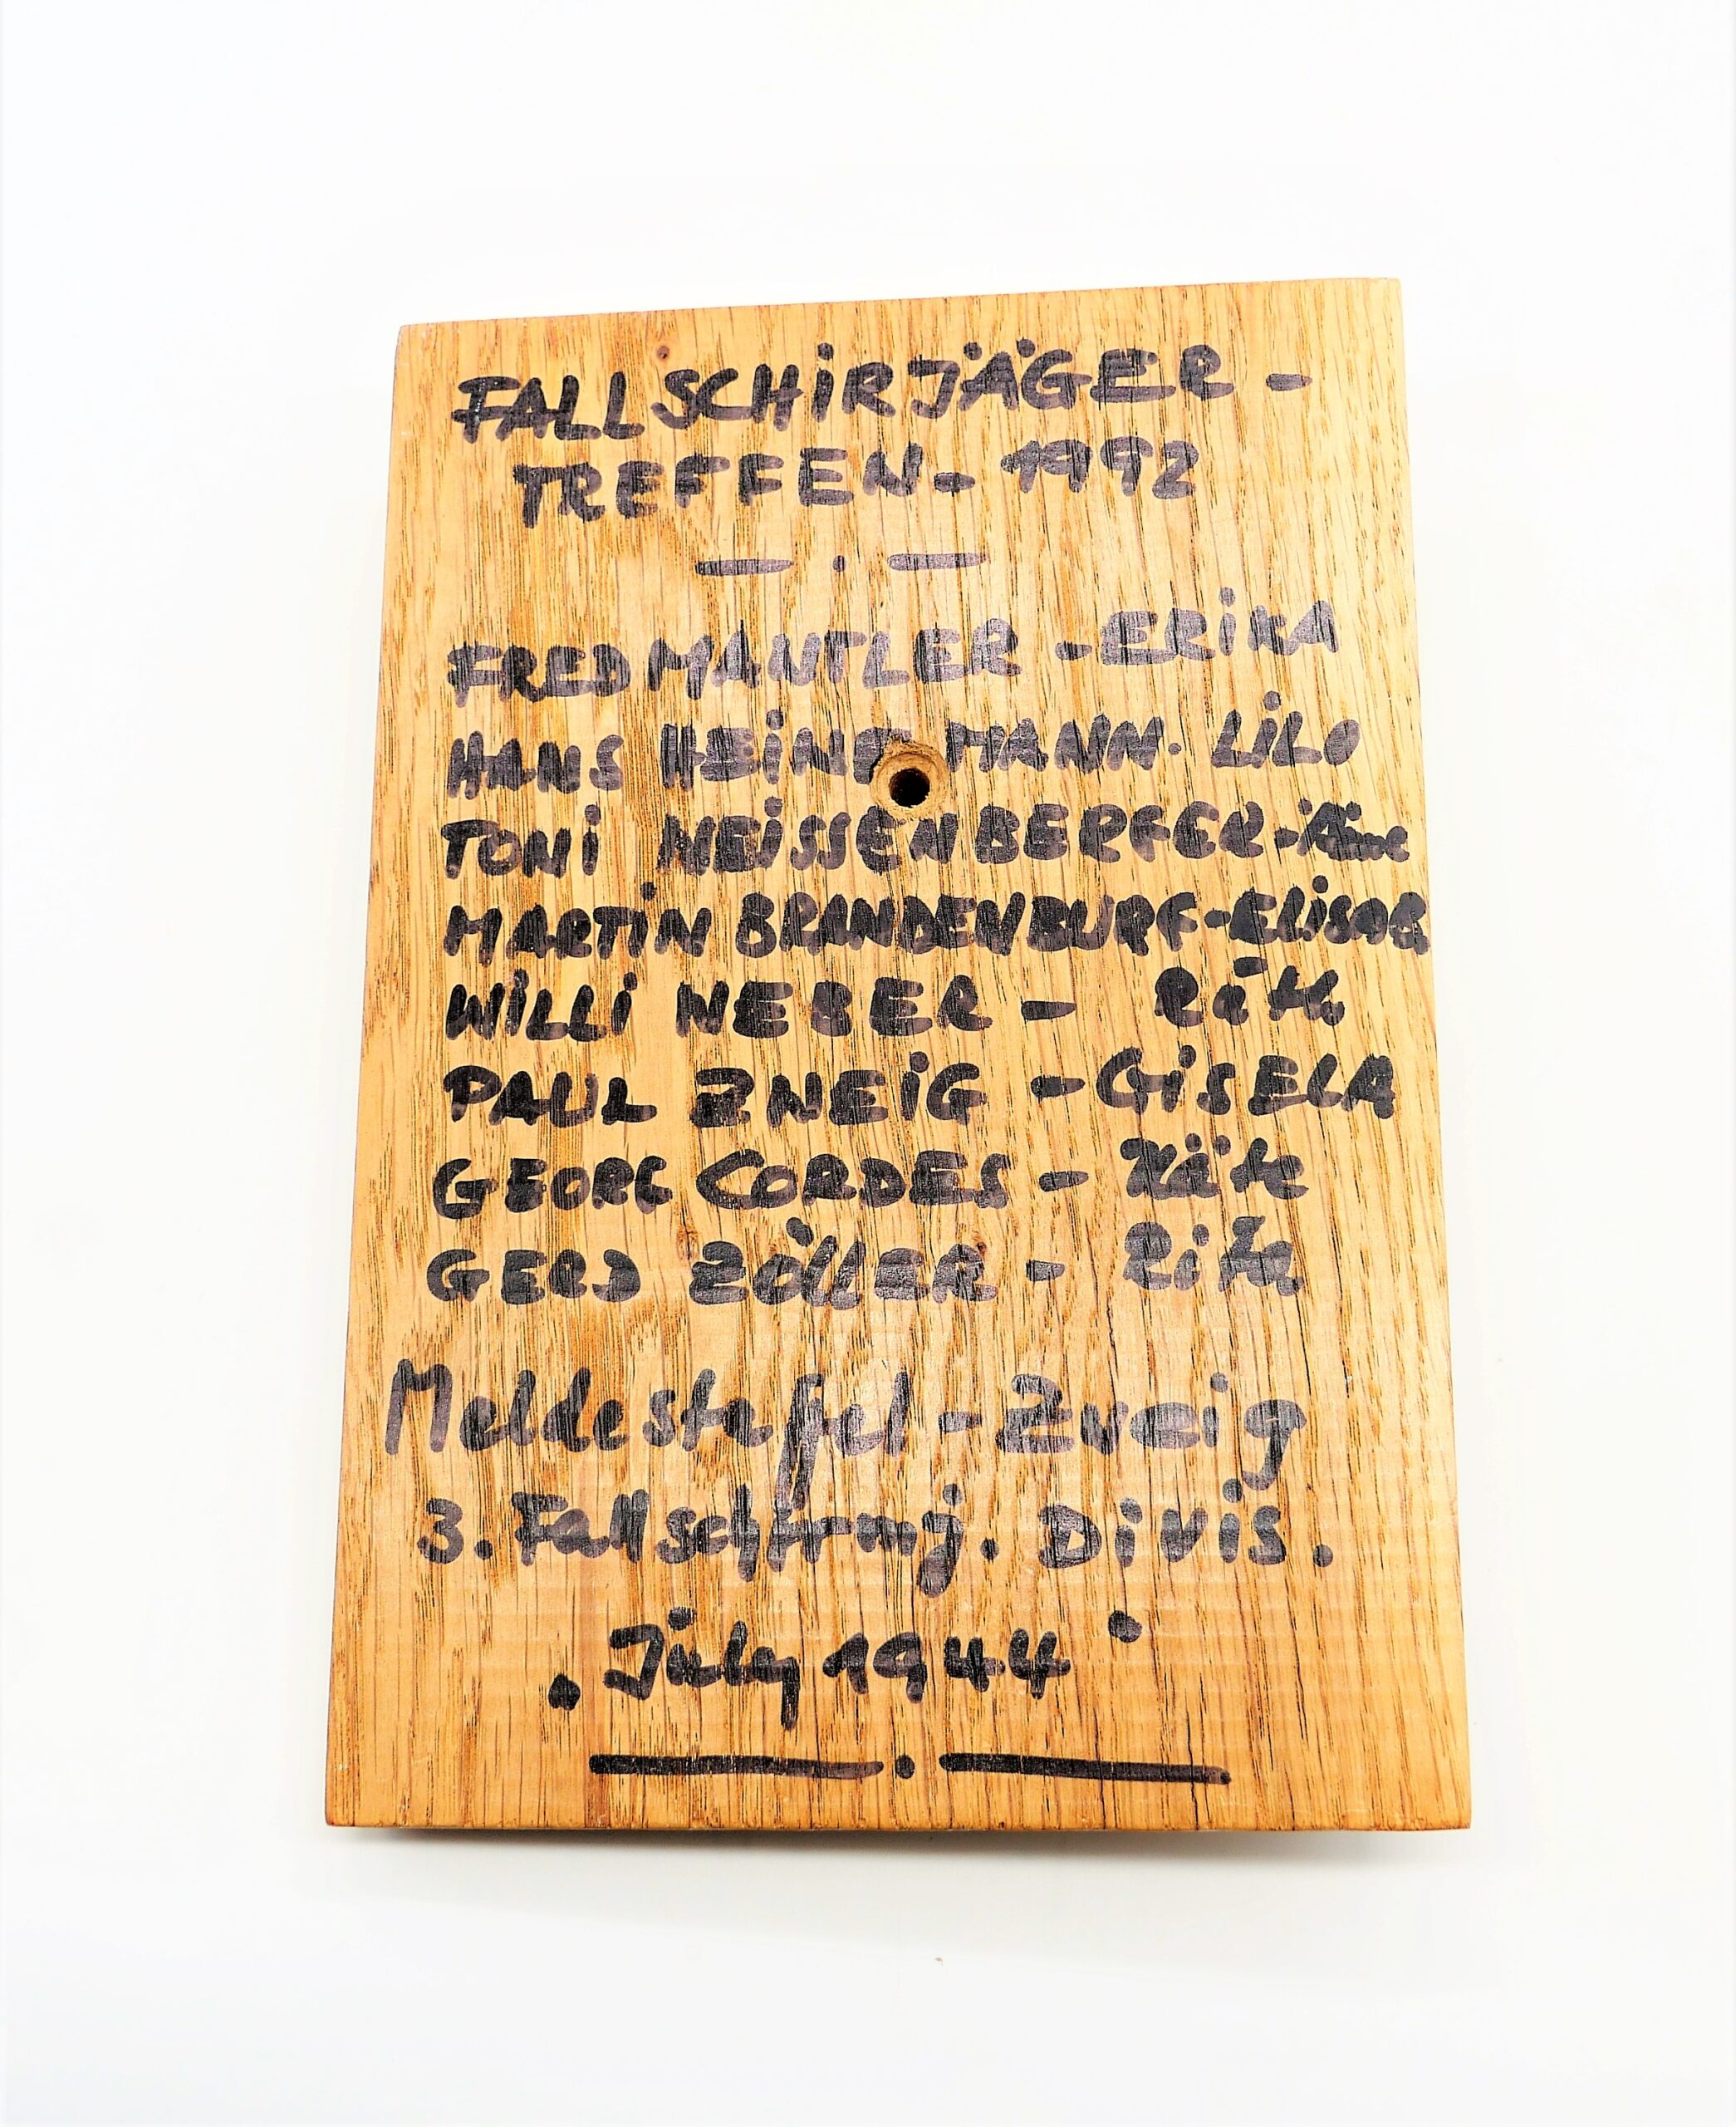 FALLSCHIRJÄGER -
TREFFEN - 1992
FRED MANTLER - ERIKA
HANS HEINE MANN - LILO
TONI WEISSENBERGER -
MARTIN BRANDENBURG - ELISAB.
WILLI WEBER -
PAUL ZWEIG - GISELA
GEORG CORDES - Käte
GERD ZÖLLER -
Meldestafel - Zweig
3. Fallschirmj. Divis.
July 1944